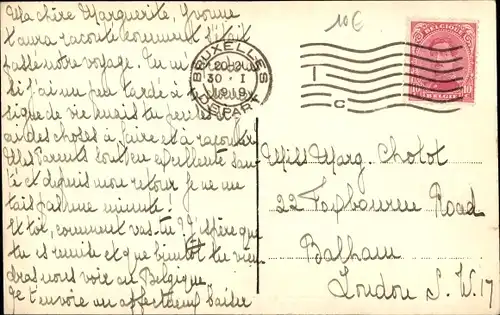 Ma chère Marguerite, Yvonne
t'aura raconté comment s'était
passé notre voyage. Tu m'
si j'ai un peu tardé à
signe de vie mais tu
ai des choses à faire et à raconter
Mes Parents sont en excellente san-
té et depuis mon retour je ne me
tais pas une minute!
Et toi, comment vas-tu? J'espère que
tu es remise et que bientôt tu vien-
dras nous voir en Belgique.
Je t'envoie un affectueux baiser
10€
BRUXELLES
30 · I
1919
DEPART
1
C
BELGIE
BELGIQUE
10 10
Miss Marg. Cholot
22 Foxbourne Road
Balham
London S.W.17